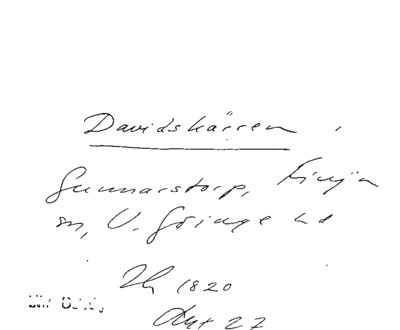 Davidskärren
Gunnarstorp, Finja
sn, V. Göinge hd
1820
27